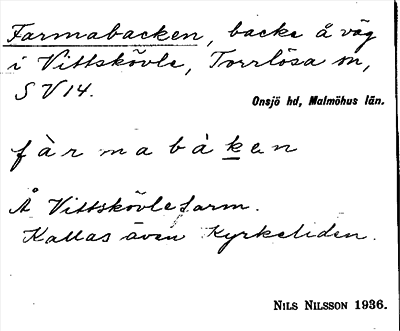 Farmabacken, backe å väg
i Vittskövle, Torrlösa sn,
SV14.
Onsjö hd, Malmöhus län.
fàr ma bà ken
Å Vittskövlefarm.
Kallas även Kyrkeliden.
NILS NILSSON 1936.